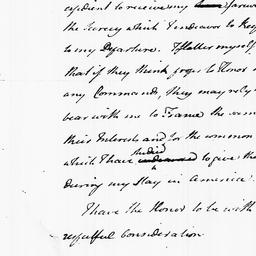 expedient to receive my farewell
the secrecy which I endeavor to keep
to my Departure. I flatter myself
that if they think prop. to Honor m
any Commands, they may rely
bear with me to France the same
their Interests and for the common
studied
which I have endeavored to give the
during my Stay in America.
I have the Honor to be with
respectful Consideration